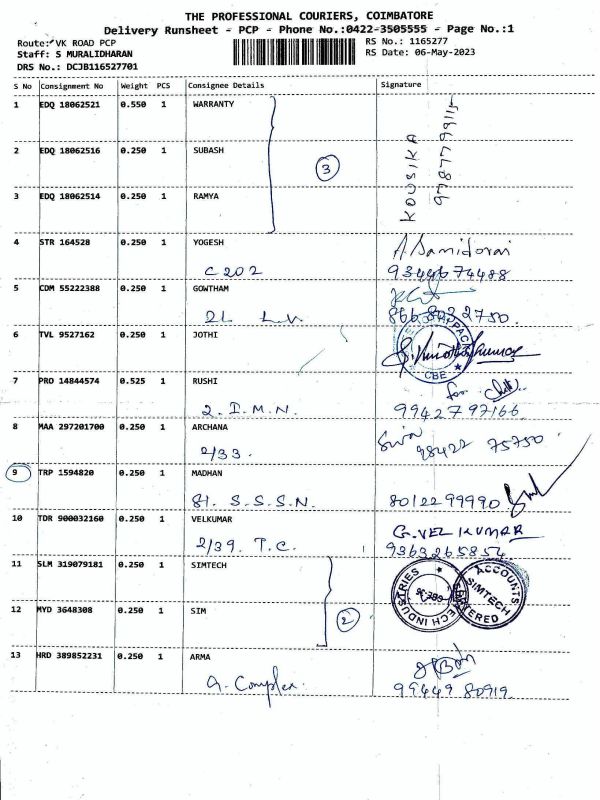 THE PROFESSIONAL COURIERS, COIMBATORE
Delivery Runsheet - PCP - Phone No.:0422-3505555 - Page No.:1
Route: VK ROAD PCP
RS No.: 1165277
Staff: S MURALIDHARAN
RS Date: 06-May-2023
DRS No.: DCJB116527701
S No Consignment No Weight PCS Consignee Details Signature
1 EDQ 18062521 0.550 1 WARRANTY
2 EDQ 18062516 0.250 1 SUBASH
3
3 EDQ 18062514 0.250 1 RAMYA
KOUSIKA
9787799115
4 STR 164528 0.250 1 YOGESH
C 202 9344674488
5 CDM 55222388 0.250 1 GOWTHAM
866 803 2750
6 TVL 9527162 0.250 1 JOTHI
CBE
7 PRO 14844574 0.525 1 RUSHI
2. I.M.N. 99427 97166
8 MAA 297201700 0.250 1 ARCHANA
2/33. 98422 75750
9 TRP 1594820 0.250 1 MADHAN
81. S.S.S.N. 8012299990
10 TDR 900032160 0.250 1 VELKUMAR
G.VEL KUMAR
2/39. T.C. 9363265854
11 SLM 319079181 0.250 1 SIMTECH
ACCOUNTS
SIMTECH
12 MYD 3648308 0.250 1 SIM
2
13 HRD 389852231 0.250 1 ARMA
99449 80919